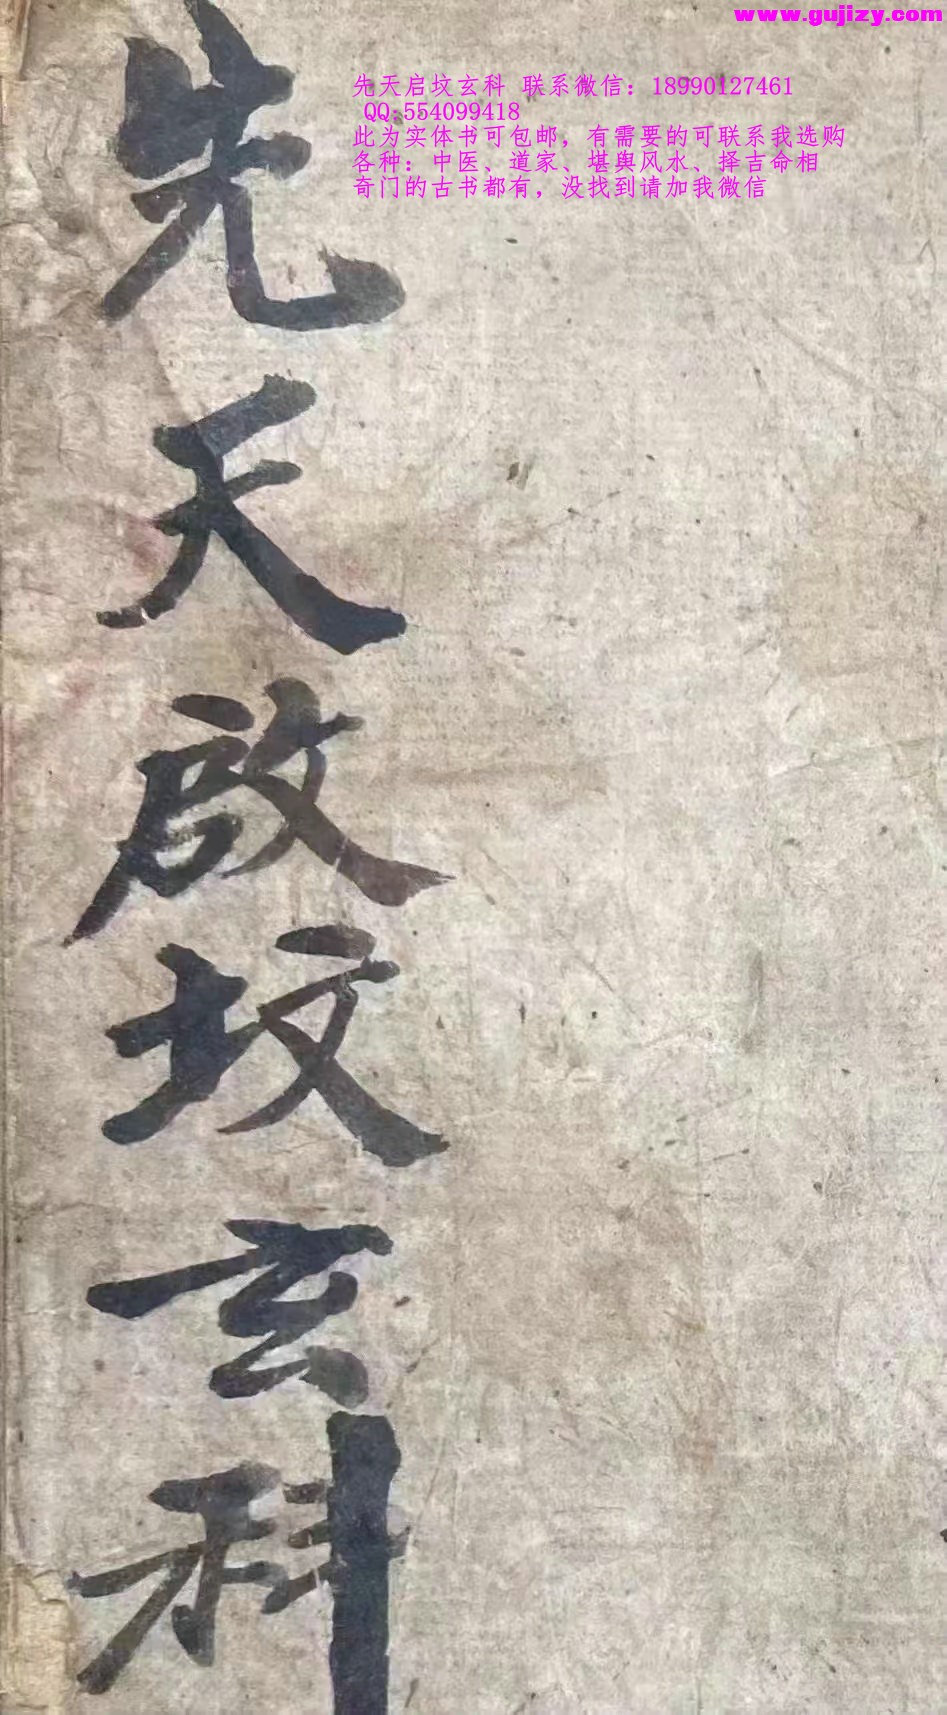 www.gujizy.com
先天启坟玄科 联系微信：18990127461
QQ:554099418
此为实体书可包邮，有需要的可联系我选购
各种：中医、道家、堪舆风水、择吉命相
奇门的古书都有，没找到请加我微信
先天啟坟玄科